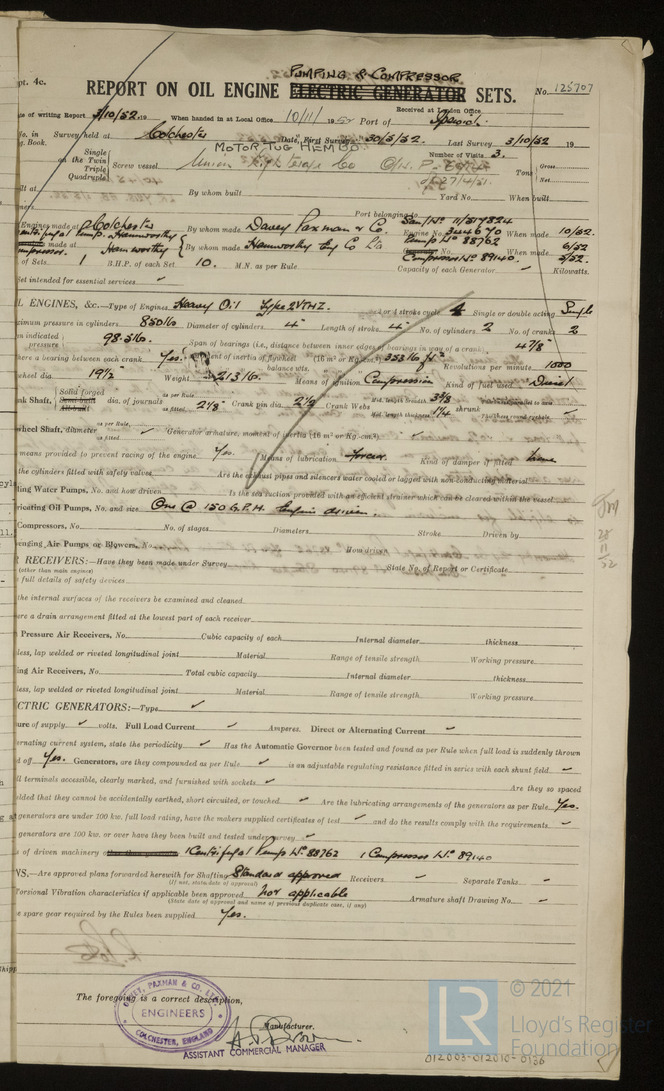 pt. 4c.
PUMPING & COMPRESSOR
REPORT ON OIL ENGINE ELECTRIC GENERATOR SETS.
No. 125707
Received at London Office
te of writing Report 3/10/52 19 When handed in at Local Office 10/11/ 1952 Port of Ipswich.
No. in Survey held at Colchester Date, First Survey 30/5/52 Last Survey 3/10/52 19
g. Book. Number of Visits 3.
MOTOR TUG HEMBO
Single
on the Twin
Triple
Quadruple
Screw vessel
Tons Gross
Net
uilt at By whom built Yard No. When built
Port belonging to
Engines made at Colchester By whom made Davey Paxman & Co. Engine No. 344670 When made 10/52
Centrifugal Pump. Hamworthy Pump No 88762 6/52
made at Hamworthy By whom made Hamworthy Eng Co Ltd When made
Compressor Compressor No 89140. 5/52.
of Sets 1 B.H.P. of each Set 10. M.N. as per Rule Capacity of each Generator Kilowatts.
Set intended for essential services
L ENGINES, &c.—Type of Engines Heavy Oil Type 2VTHZ. 2 or 4 stroke cycle 4 Single or double acting Single
ximum pressure in cylinders 850 lb Diameter of cylinders 4" Length of stroke 4" No. of cylinders 2 No. of cranks 2
n indicated pressure 98.5 lb. Span of bearings (i.e., distance between inner edges of bearings in way of a crank) 4 7/8"
here a bearing between each crank Yes Moment of inertia of flywheel (16 m² or Kg.cm.²) 353 lb ft² Revolutions per minute 1000
wheel dia. 19½" Weight 213 lb. Means of ignition Compression Kind of fuel used Diesel
nk Shaft, Solid forged dia. of journals as per Rule as fitted 2⅛" Crank pin dia. Crank Webs Mid. length breadth Mid. length thickness 1¼ shrunk
wheel Shaft, diameter as per Rule as fitted Generator armature, moment of inertia (16 m² or Kg.-cm.²)
means provided to prevent racing of the engine Yes. Means of lubrication forced Kind of damper if fitted none
the cylinders fitted with safety valves Are the exhaust pipes and silencers water cooled or lagged with non-conducting material
ling Water Pumps, No. and how driven Is the sea suction provided with an efficient strainer which can be cleared within the vessel
ricating Oil Pumps, No. and size One @ 150 G.P.H. Engine driven.
Compressors, No. No. of stages Diameters Stroke Driven by
enging Air Pumps or Blowers, No. How driven
R RECEIVERS:—Have they been made under Survey State No. of Report or Certificate
(other than main engines)
full details of safety devices
the internal surfaces of the receivers be examined and cleaned
ere a drain arrangement fitted at the lowest part of each receiver
Pressure Air Receivers, No. Cubic capacity of each Internal diameter thickness
less, lap welded or riveted longitudinal joint Material Range of tensile strength Working pressure
ing Air Receivers, No. Total cubic capacity Internal diameter thickness
less, lap welded or riveted longitudinal joint Material Range of tensile strength Working pressure
CTRIC GENERATORS:—Type
ure of supply volts. Full Load Current Amperes. Direct or Alternating Current
ernating current system, state the periodicity Has the Automatic Governor been tested and found as per Rule when full load is suddenly thrown
d off Yes. Generators, are they compounded as per Rule is an adjustable regulating resistance fitted in series with each shunt field
ll terminals accessible, clearly marked, and furnished with sockets Are they so spaced
elded that they cannot be accidentally earthed, short circuited, or touched Are the lubricating arrangements of the generators as per Rule Yes.
generators are under 100 kw. full load rating, have the makers supplied certificates of test and do the results comply with the requirements
generators are 100 kw. or over have they been built and tested under survey
s of driven machinery 1 Centrifugal Pump No. 88762 1 Compressor No. 89140
NS.—Are approved plans forwarded herewith for Shafting Standard approved Receivers Separate Tanks
(If not, state date of approval)
Torsional Vibration characteristics if applicable been approved Not applicable Armature shaft Drawing No.
(State date of approval and name of previous duplicate case, if any)
e spare gear required by the Rules been supplied Yes.
The foregoing is a correct description,
DAVEY, PAXMAN & CO. LTD.
ENGINEERS
COLCHESTER, ENGLAND
Manufacturer.
ASSISTANT COMMERCIAL MANAGER
LR
© 2021
Lloyd's Register
Foundation
012003-012010-0136